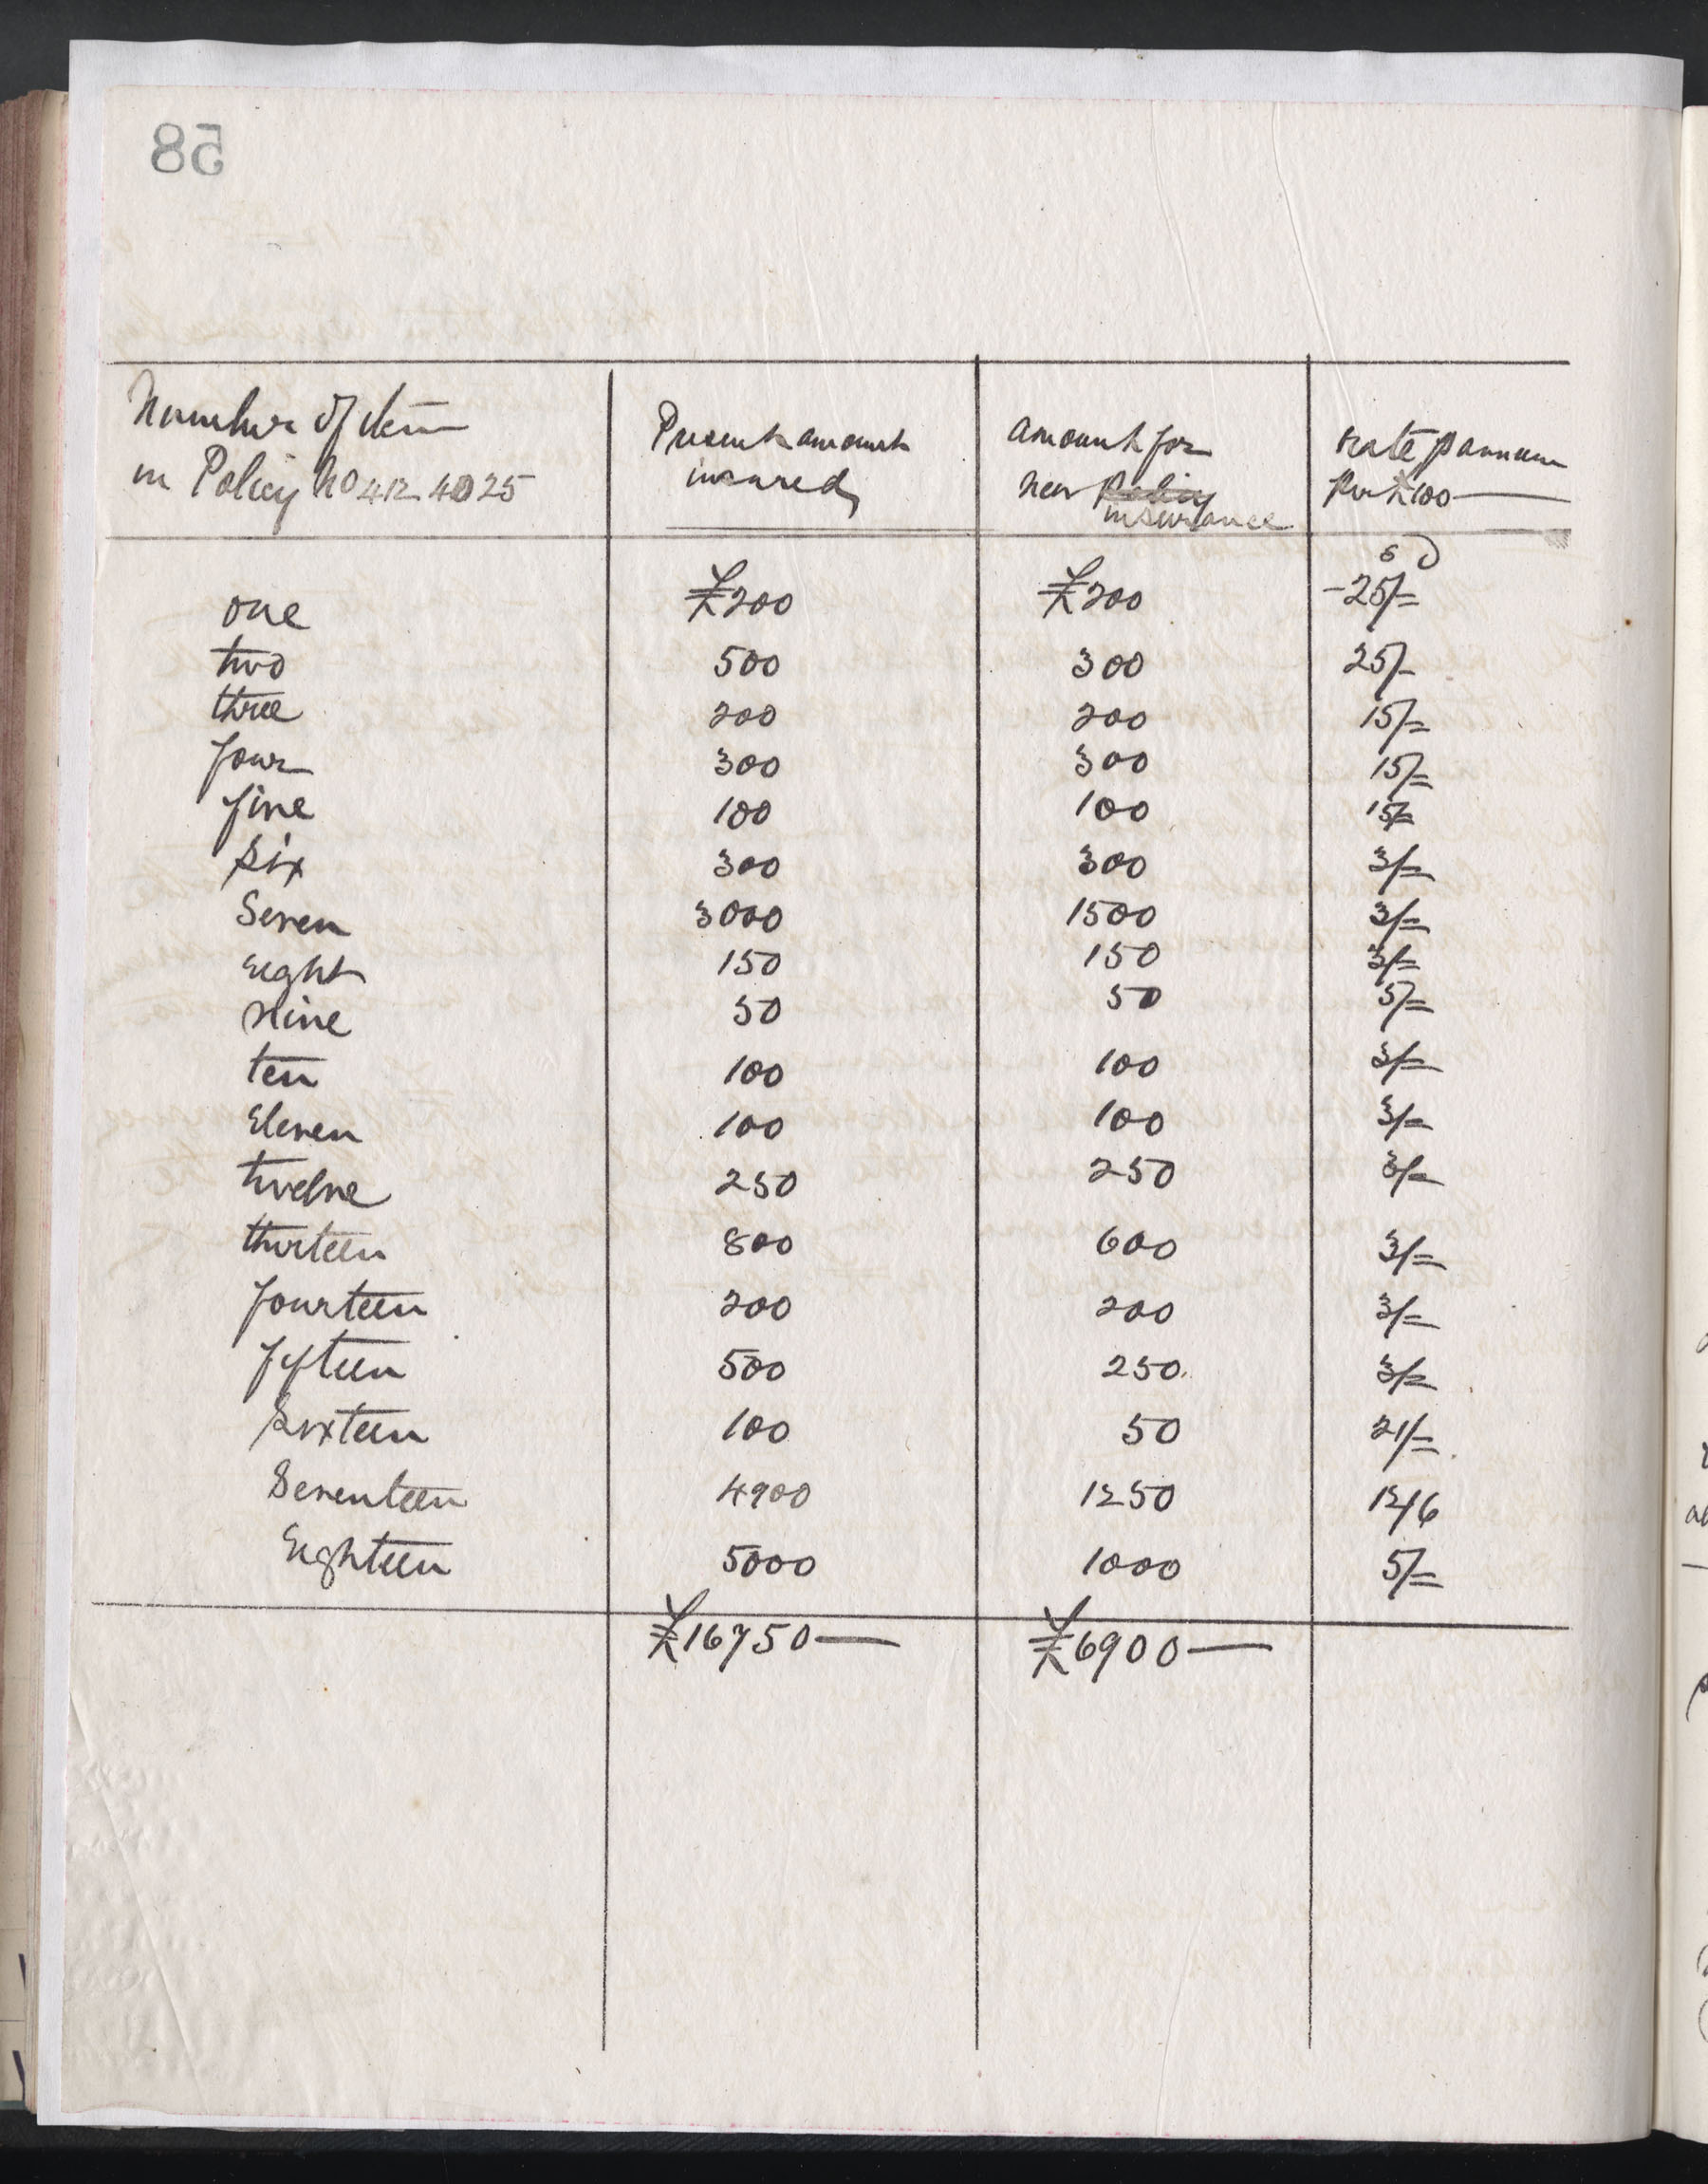 58
Number of Item
in Policy No 412 4025
Present amount
insured
amount for
new Policy
insurance
rate p annum
Per £100
s d
one £200 £200 -25/=
two 500 300 25/-
three 200 200 15/=
four 300 300 15/=
five 100 100 15/=
Six 300 300 3/=
Seven 3000 1500 3/=
Eight 150 150 3/=
Nine 50 50 5/=
ten 100 100 3/=
Eleven 100 100 3/=
twelve 250 250 3/=
thirteen 800 600 3/=
fourteen 200 200 3/=
fifteen 500 250 3/=
Sixteen 100 50 21/=
Seventeen 4900 1250 12/6
Eighteen 5000 1000 5/=
£16750— £6900—